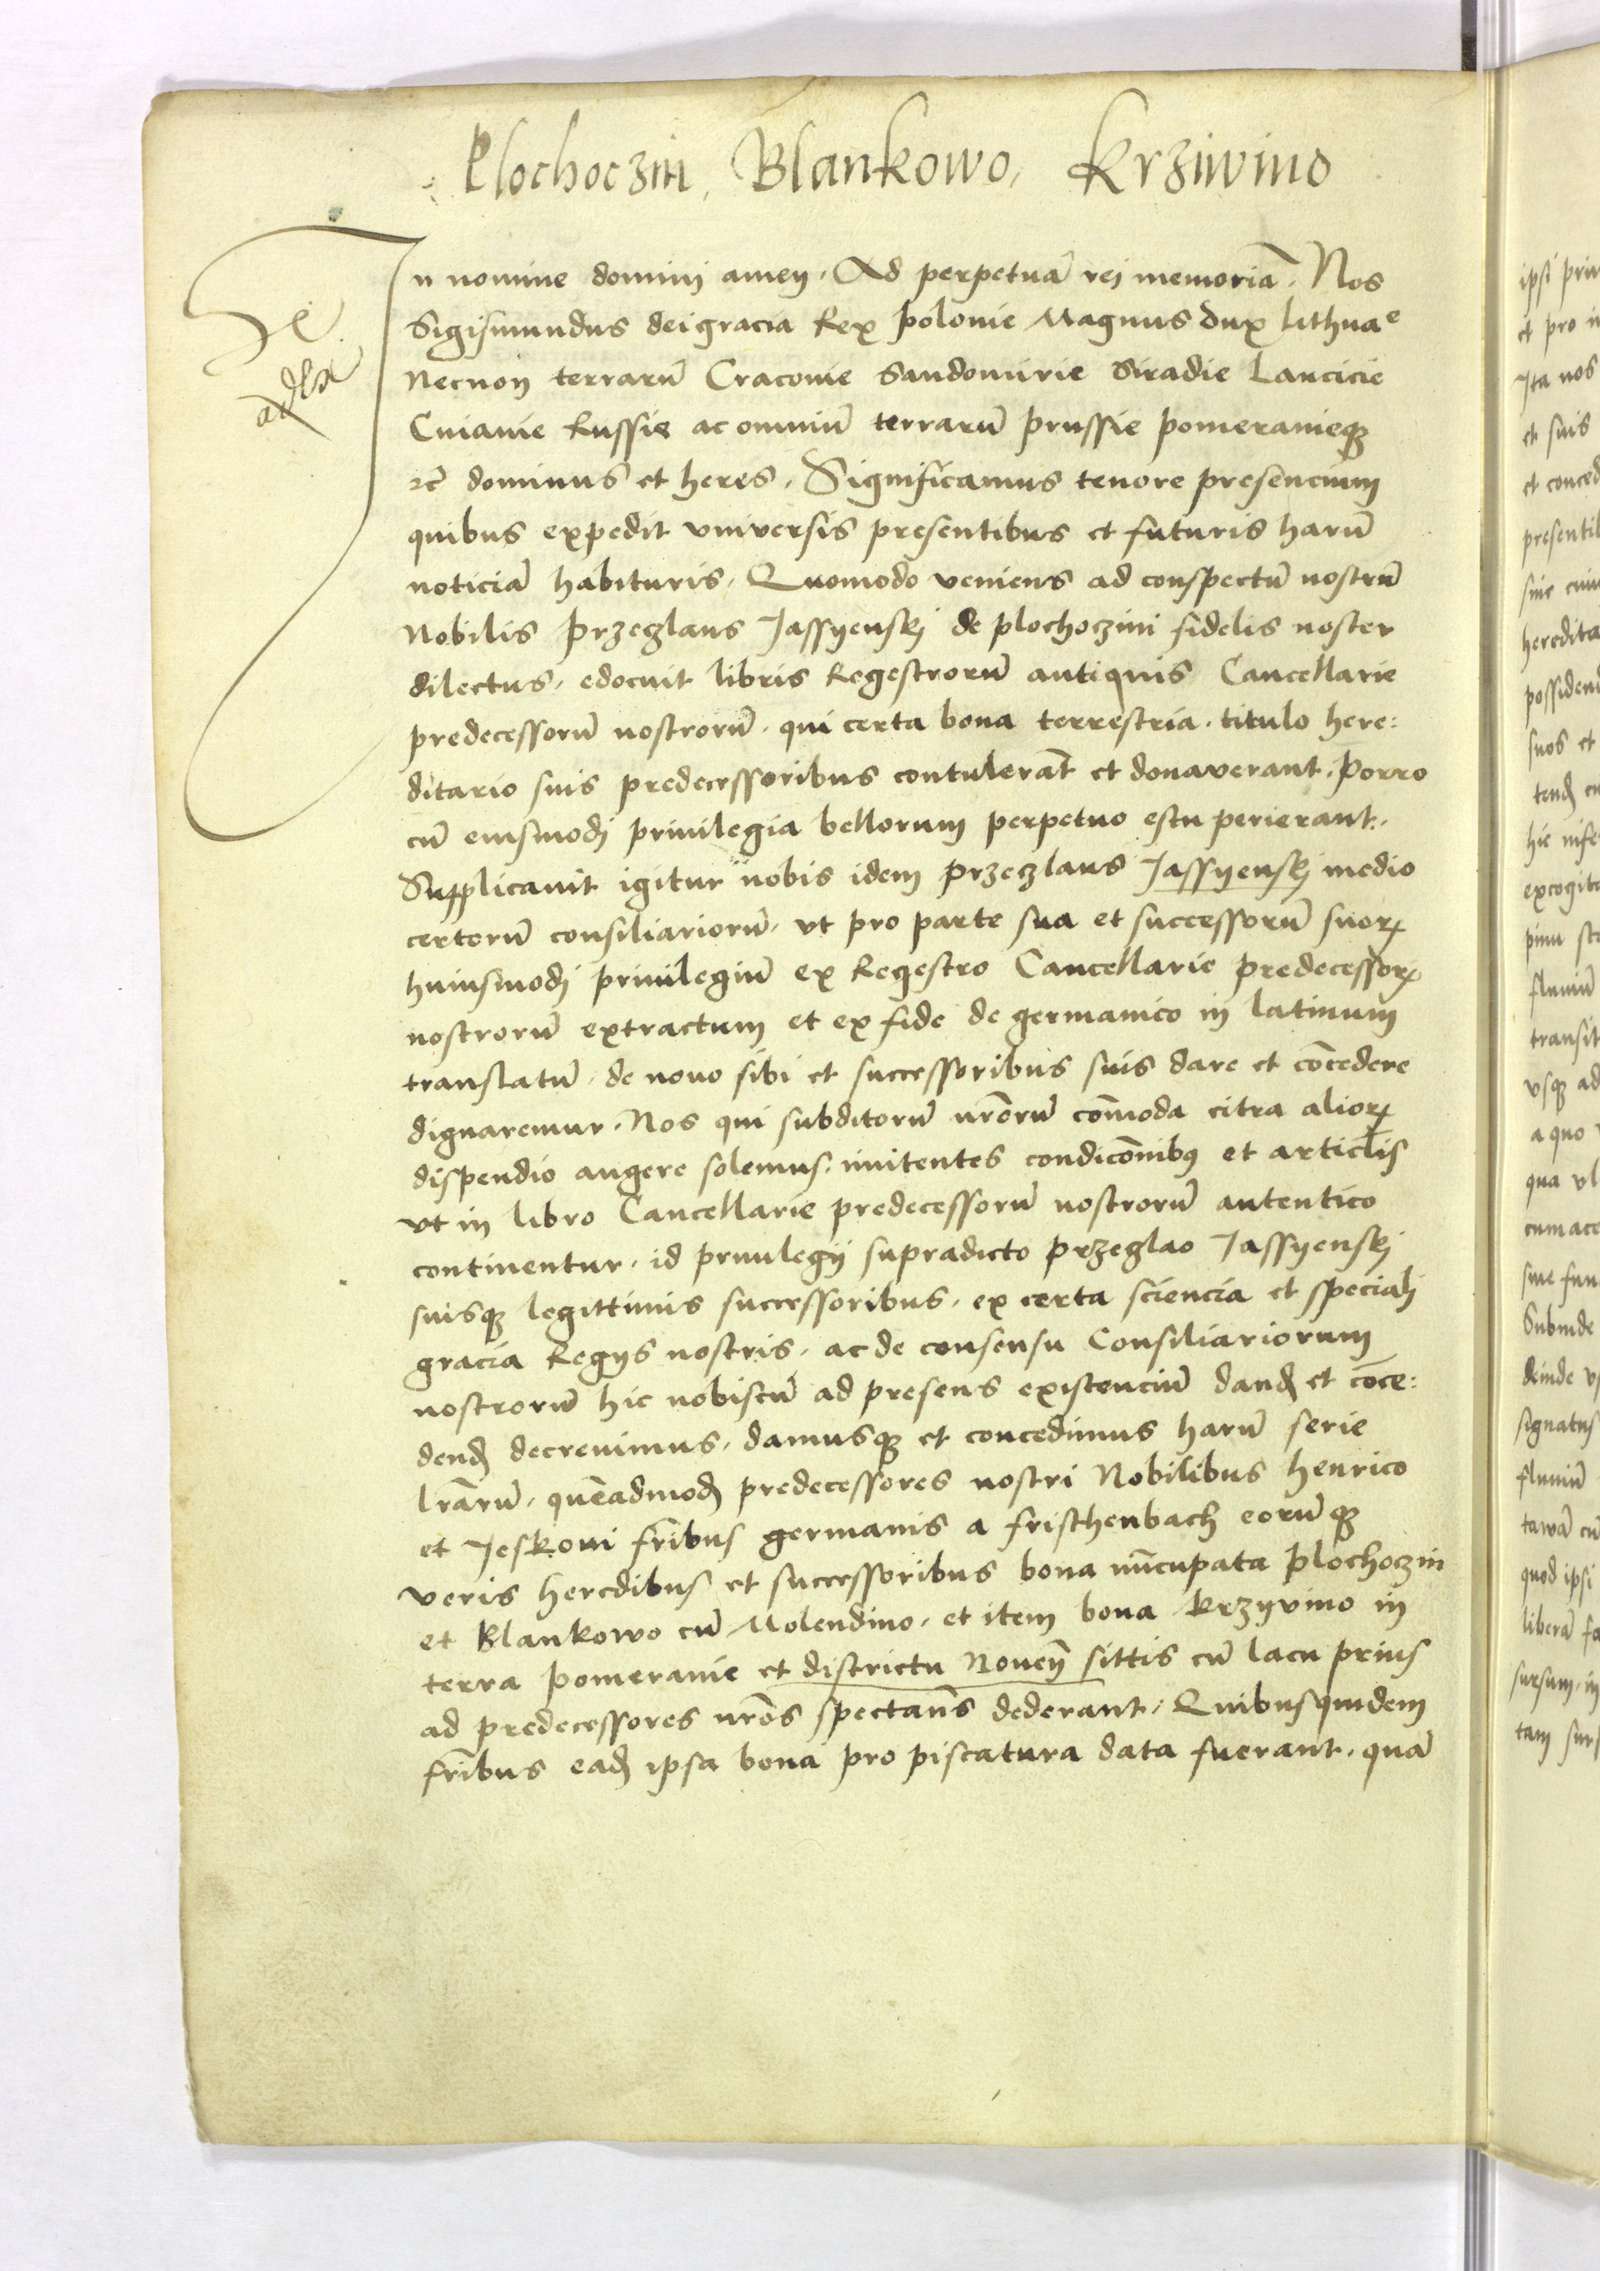 Plochoczin, Blankowo, Krziwino
In nomine dominj amen. Ad perpetuā rej memoriā. Nos
Sigismundus dei gracia Rex polonie Magnus dux Lithuaᵉ
Necnon terrarū Cracouie Sandomirie Siradie Lancicie
Cuiauie Russie ac omniū terrarū prussie pomeranieqꝫ
⁊c̄ dominus et heres. Significamus tenore presencium
quibus expedit vniversis presentibus et futuris harū
noticiā habituris. Quomodo veniens ad conspectū nostrū
Nobilis Przeczlaus Jassyenskj de plochoczini fidelis noster
dilectus, edocuit libris Regestrorū antiquis Cancellarie
predecessorū nostrorū, qui certa bona terrestria, titulo here:
ditario suis predecessoribus contulerāt et donaverant. Porro
cū eiusmodj priuilegia bellorum perpetuo estu perierant.
Supplicauit igitur nobis idem Przeczlaus Jassyenskj medio
certorū consiliariorū, vt pro parte sua et successorū suorꝝ
huiusmodj priuilegiū ex Regestro Cancellarie predecessorꝝ
nostrorū extractum et ex fide de germanico in latinum
translatū, de nouo sibi et successoribus suis dare et cōcedere
dignaremur. Nos qui subditorū nr̄orū cōmoda citra aliorꝝ
dispendio augere solemus, innitentes condicōnibꝰ et articl̄is
vt in libro Cancellarie predecessorū nostrorū autentico
continentur, id priuilegij supradicto Przeczlao Jassyenskj
suisqꝫ legittimis successoribus, ex certa sciencia et specialj
gracia Regijs nostris, ac de consensu Consiliariorum
nostrorū hic nobiscū ad presens existenciū dand̄ et cōce:
dend̄ decreuimus, damusqꝫ et concedimus harū serie
lr̄arū, quēadmod̄ predecessores nostri Nobilibus henrico
et Jeskoni fr̄ibus germanis a frischenbach eorūqꝫ
veris heredibus et successoribus bona nūcupata plochoczin
et Blankowo cū Molendino, et item bona Krzyvino in
terra pomeranie et districtu Nouen̄ sittis cū lacu prius
ad predecessores nr̄os spectan̄s dederant. Quibusquidem
fr̄ibus ead̄ ipsa bona pro piscatura data fuerant, quā
ipsi
et pro
Ita nos
et suis
et
hereditа
suos et
hic
flumiū
transit
vsqꝫ ad
a quo
qua vl
Subinde
deinde
signatus
flumiū
quod ipsi
liberā
sursum, in
tam